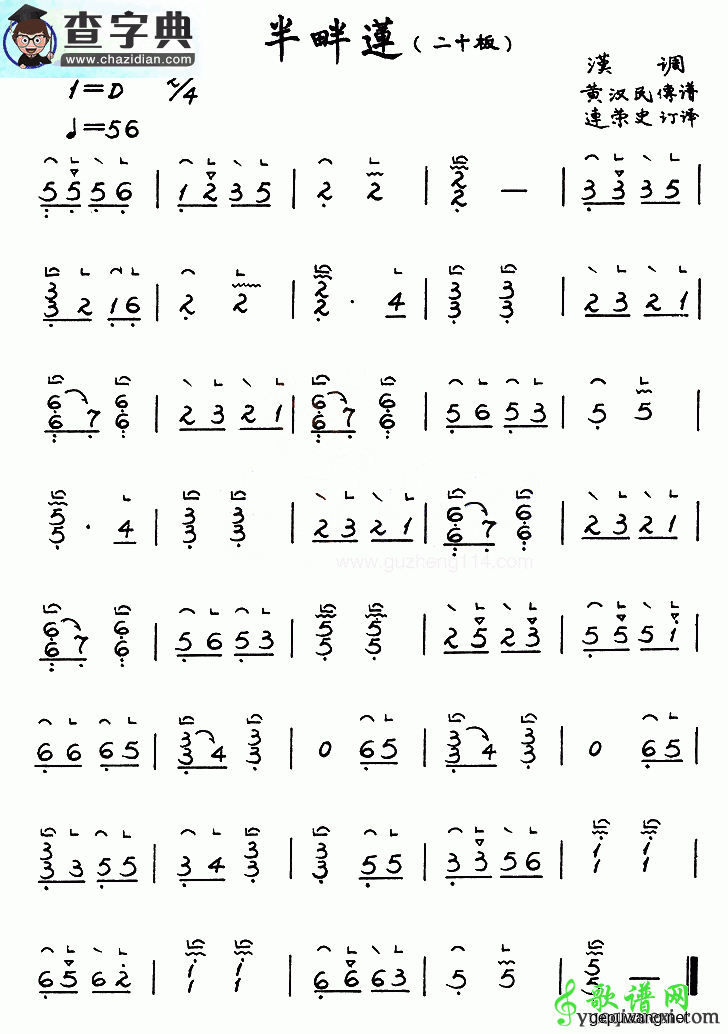 查字典
www.chazidian.com
半畔蓮（二十板）
漢 調
1=D 2/4
黄汉民傳谱
♩=56
連荣史订译
5 5 5 6 | 1 2 3 5 | 2 2 | 2 2 — | 3 3 3 5 |
3 3 2 1 6 | 2 2 | 2 2 · 4 | 3 3 3 3 | 2 3 2 1 |
6 6 7 6 6 | 2 3 2 1 | 6 6 7 6 6 | 5 6 5 3 | 5 5 |
5 5 · 4 | 3 3 3 3 | 2 3 2 1 | 6 6 7 6 6 | 2 3 2 1 |
www.guzheng114.com
6 6 7 6 6 | 5 6 5 3 | 5 5 5 5 | 2 5 2 3 | 5 5 5 1 |
6 6 6 5 | 3 3 4 3 3 | 0 6 5 | 3 3 4 3 3 | 0 6 5 |
3 3 3 5 5 | 3 4 3 3 | 3 3 5 5 | 3 3 5 6 | 1 1 1 1 |
6 5 6 2 | 1 1 1 1 | 6 6 6 3 | 5 5 | 5 5 — ‖
歌谱网